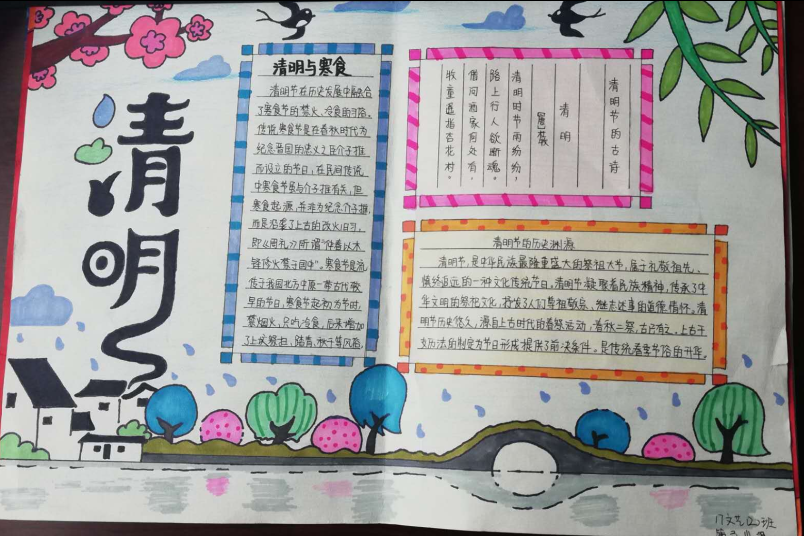 清明
清明与寒食
清明节在历史发展中融合
了寒食节的禁火、冷食的习俗。
传说寒食节是在春秋时代为
纪念晋国的忠义之臣介子推
而设立的节日，在民间传说
中寒食节是与介子推有关，但
寒食起源，并非为纪念介子推，
而是沿袭了上古的改火旧习，
即《周礼》所谓"仲春以木
铎修火禁于国中"。寒食节是流
传于我国北方中原一带古代较
早的节日，寒食节起初为节时，
禁烟火，只吃冷食，后来增加
了上坟祭扫，踏青，秋千等风俗。
清明节的古诗
清明
【唐】杜牧
清明时节雨纷纷，
路上行人欲断魂。
借问酒家何处有，
牧童遥指杏花村。
清明节的历史渊源
清明节，是中华民族最隆重盛大的祭祖大节，属于礼敬祖先、
慎终追远的一种文化传统节日，清明节凝聚着民族精神，传承了中
华文明的祭祀文化，抒发人们尊祖敬宗、继志述事的道德情怀。清
明节历史悠久，源自上古时代的春祭运动，春秋二祭，古已有之。上古干
支历法的制定为节日形成提供了前决条件。是传统春季节俗的开年。
17文艺(2)班